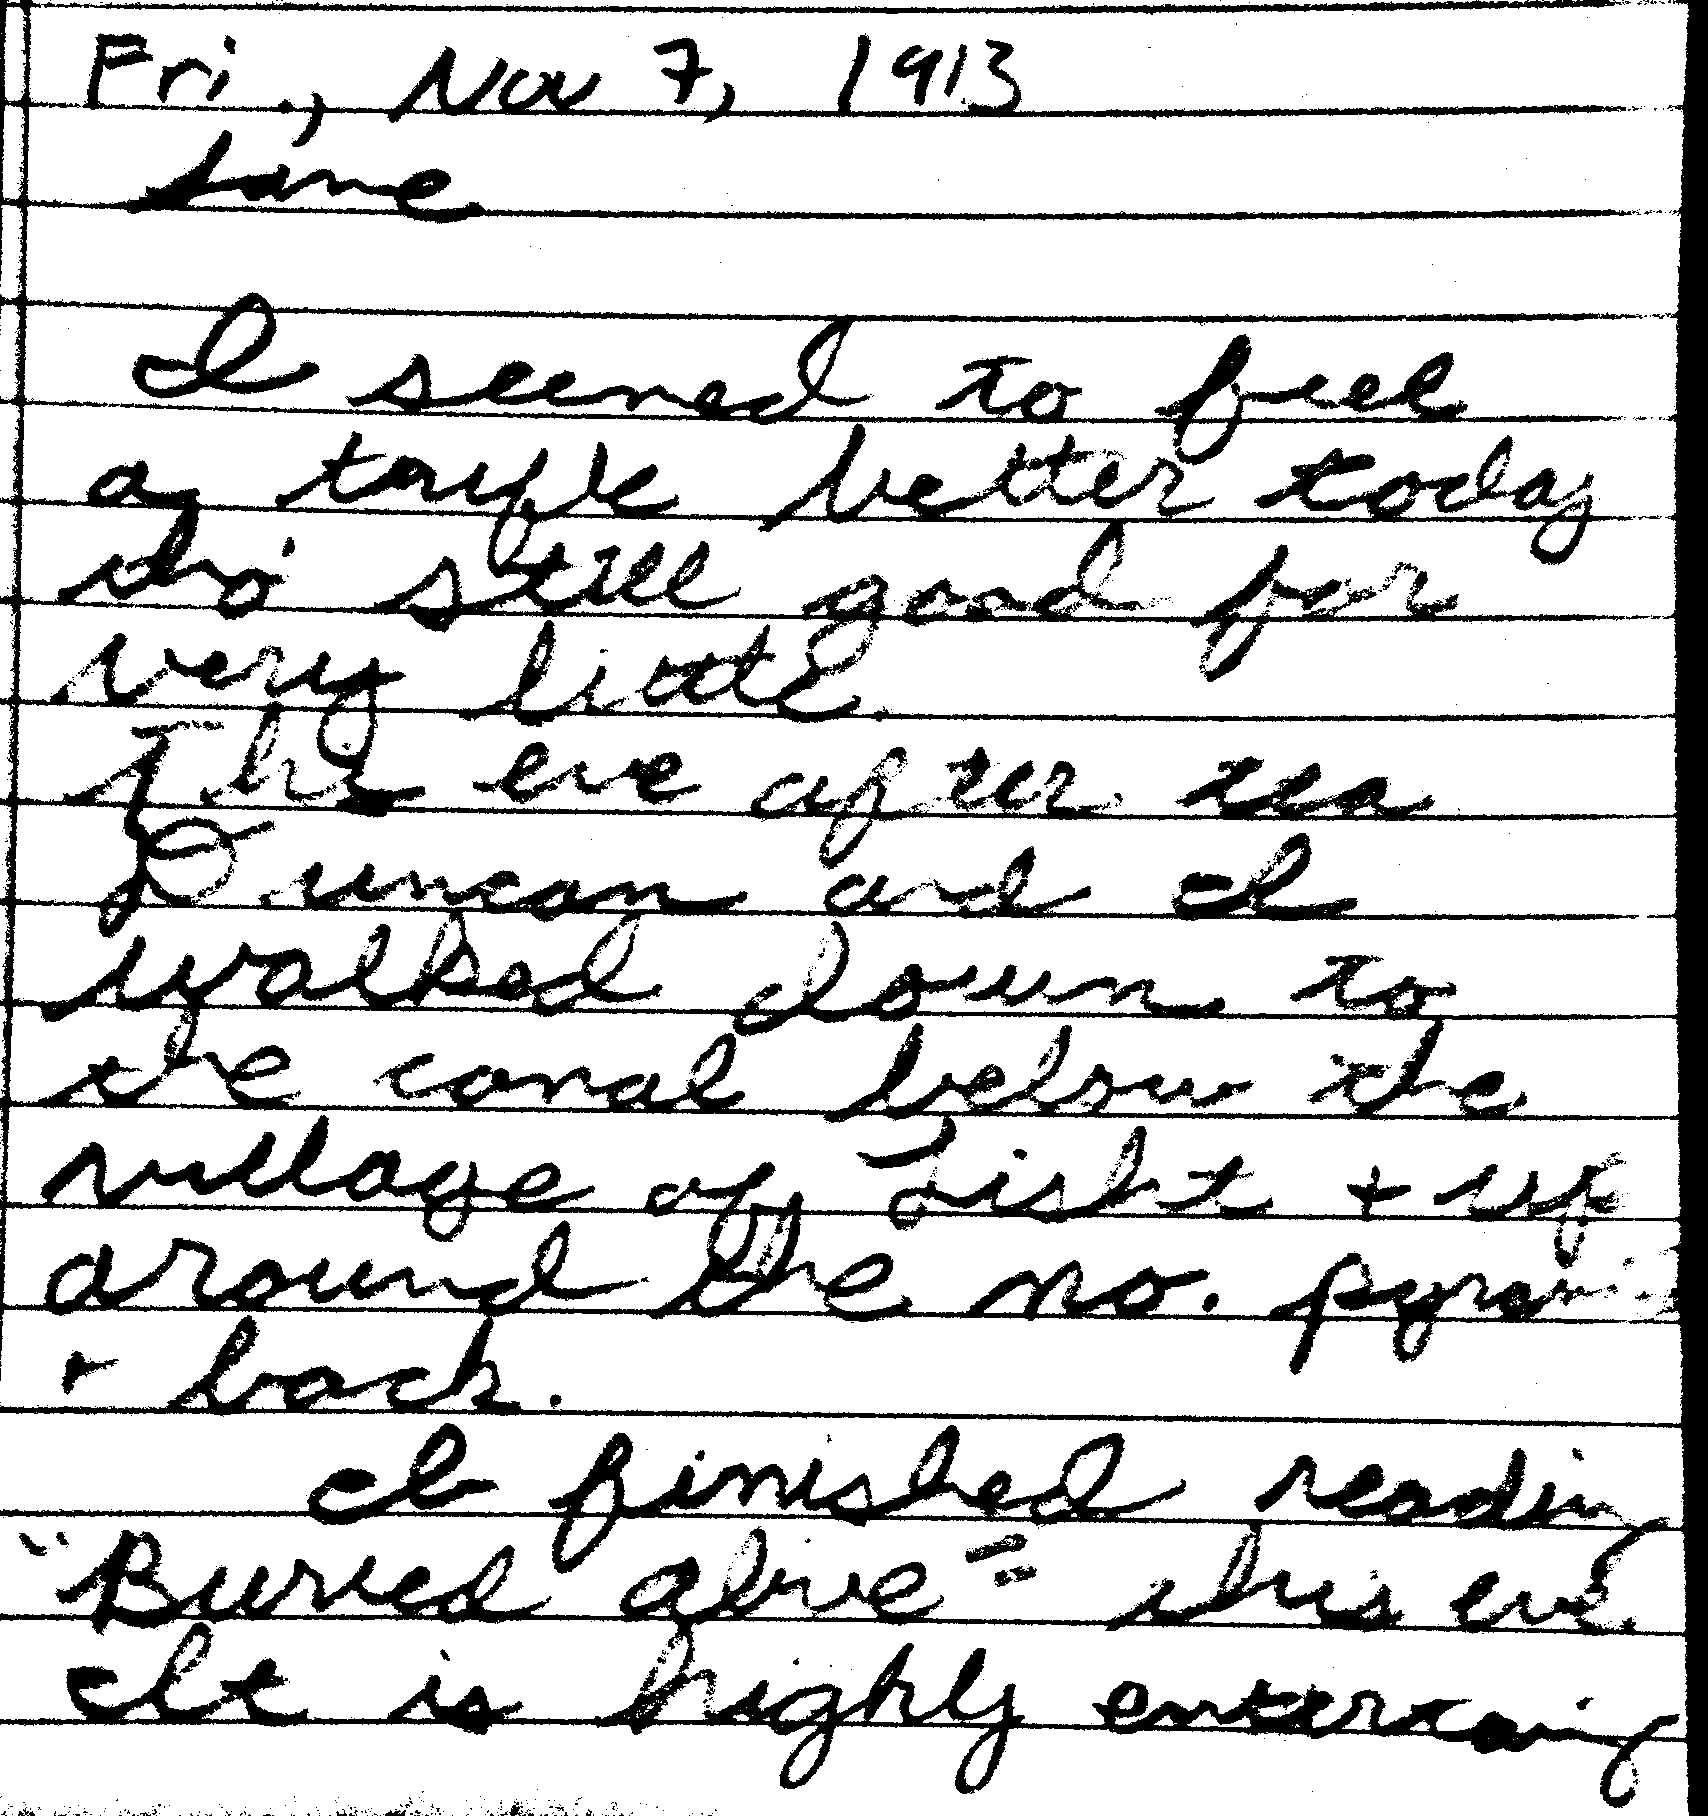 Fri., Nov 7, 1913
Same
I seemed to feel
a trifle better today
tho' still good for
very little.
This eve after tea
Duncan and I
walked down to
the canal below the
village of Lisht + up
around the no. pyrami
+ back.
I finished reading
"Buried alive" this eve.
It is highly entertaing